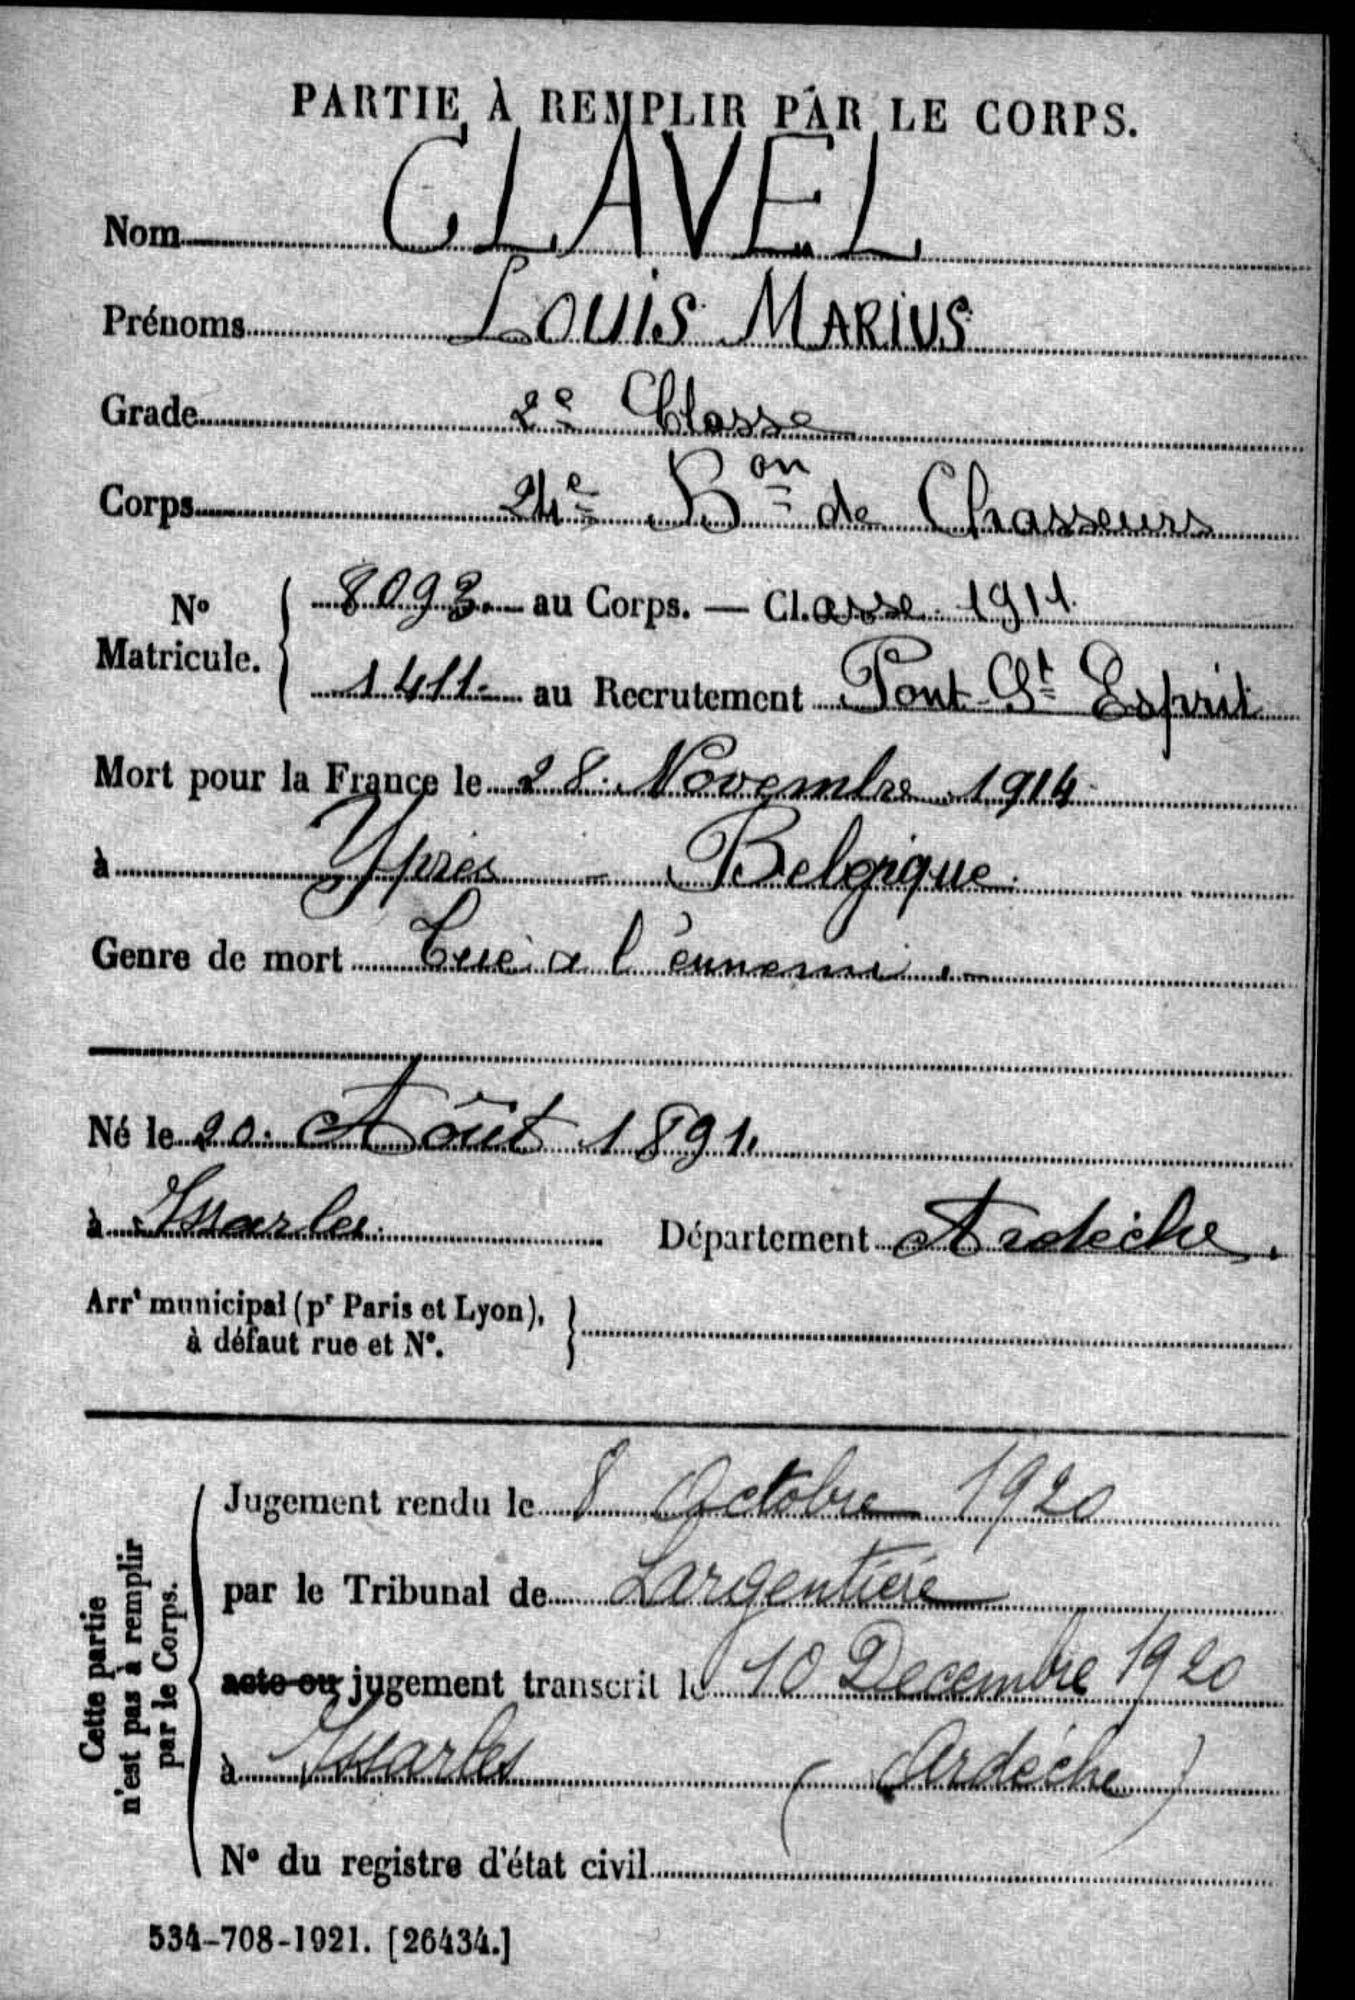 PARTIE À REMPLIR PAR LE CORPS.
Nom CLAVEL
Prénoms LOUIS MARIUS
Grade 2e Classe
Corps 24e Bon de Chasseurs
No Matricule. { 8093. au Corps. — Cl.asse 1911.
1411- au Recrutement Pont-St Esprit
Mort pour la France le 28. Novembre 1914-
à Ypres - Belgique.
Genre de mort Tué à l'ennemi.-
Né le 20. Août 1891.
à Issarles. Département Ardèche.
Arrt municipal (pr Paris et Lyon), }
à défaut rue et No.
Cette partie
n'est pas à remplir
par le Corps.
Jugement rendu le 8 Octobre 1920
par le Tribunal de Largentière
acte ou jugement transcrit le 10 Decembre 1920
à Issarles (Ardèche)
No du registre d'état civil
534-708-1921. [26434.]